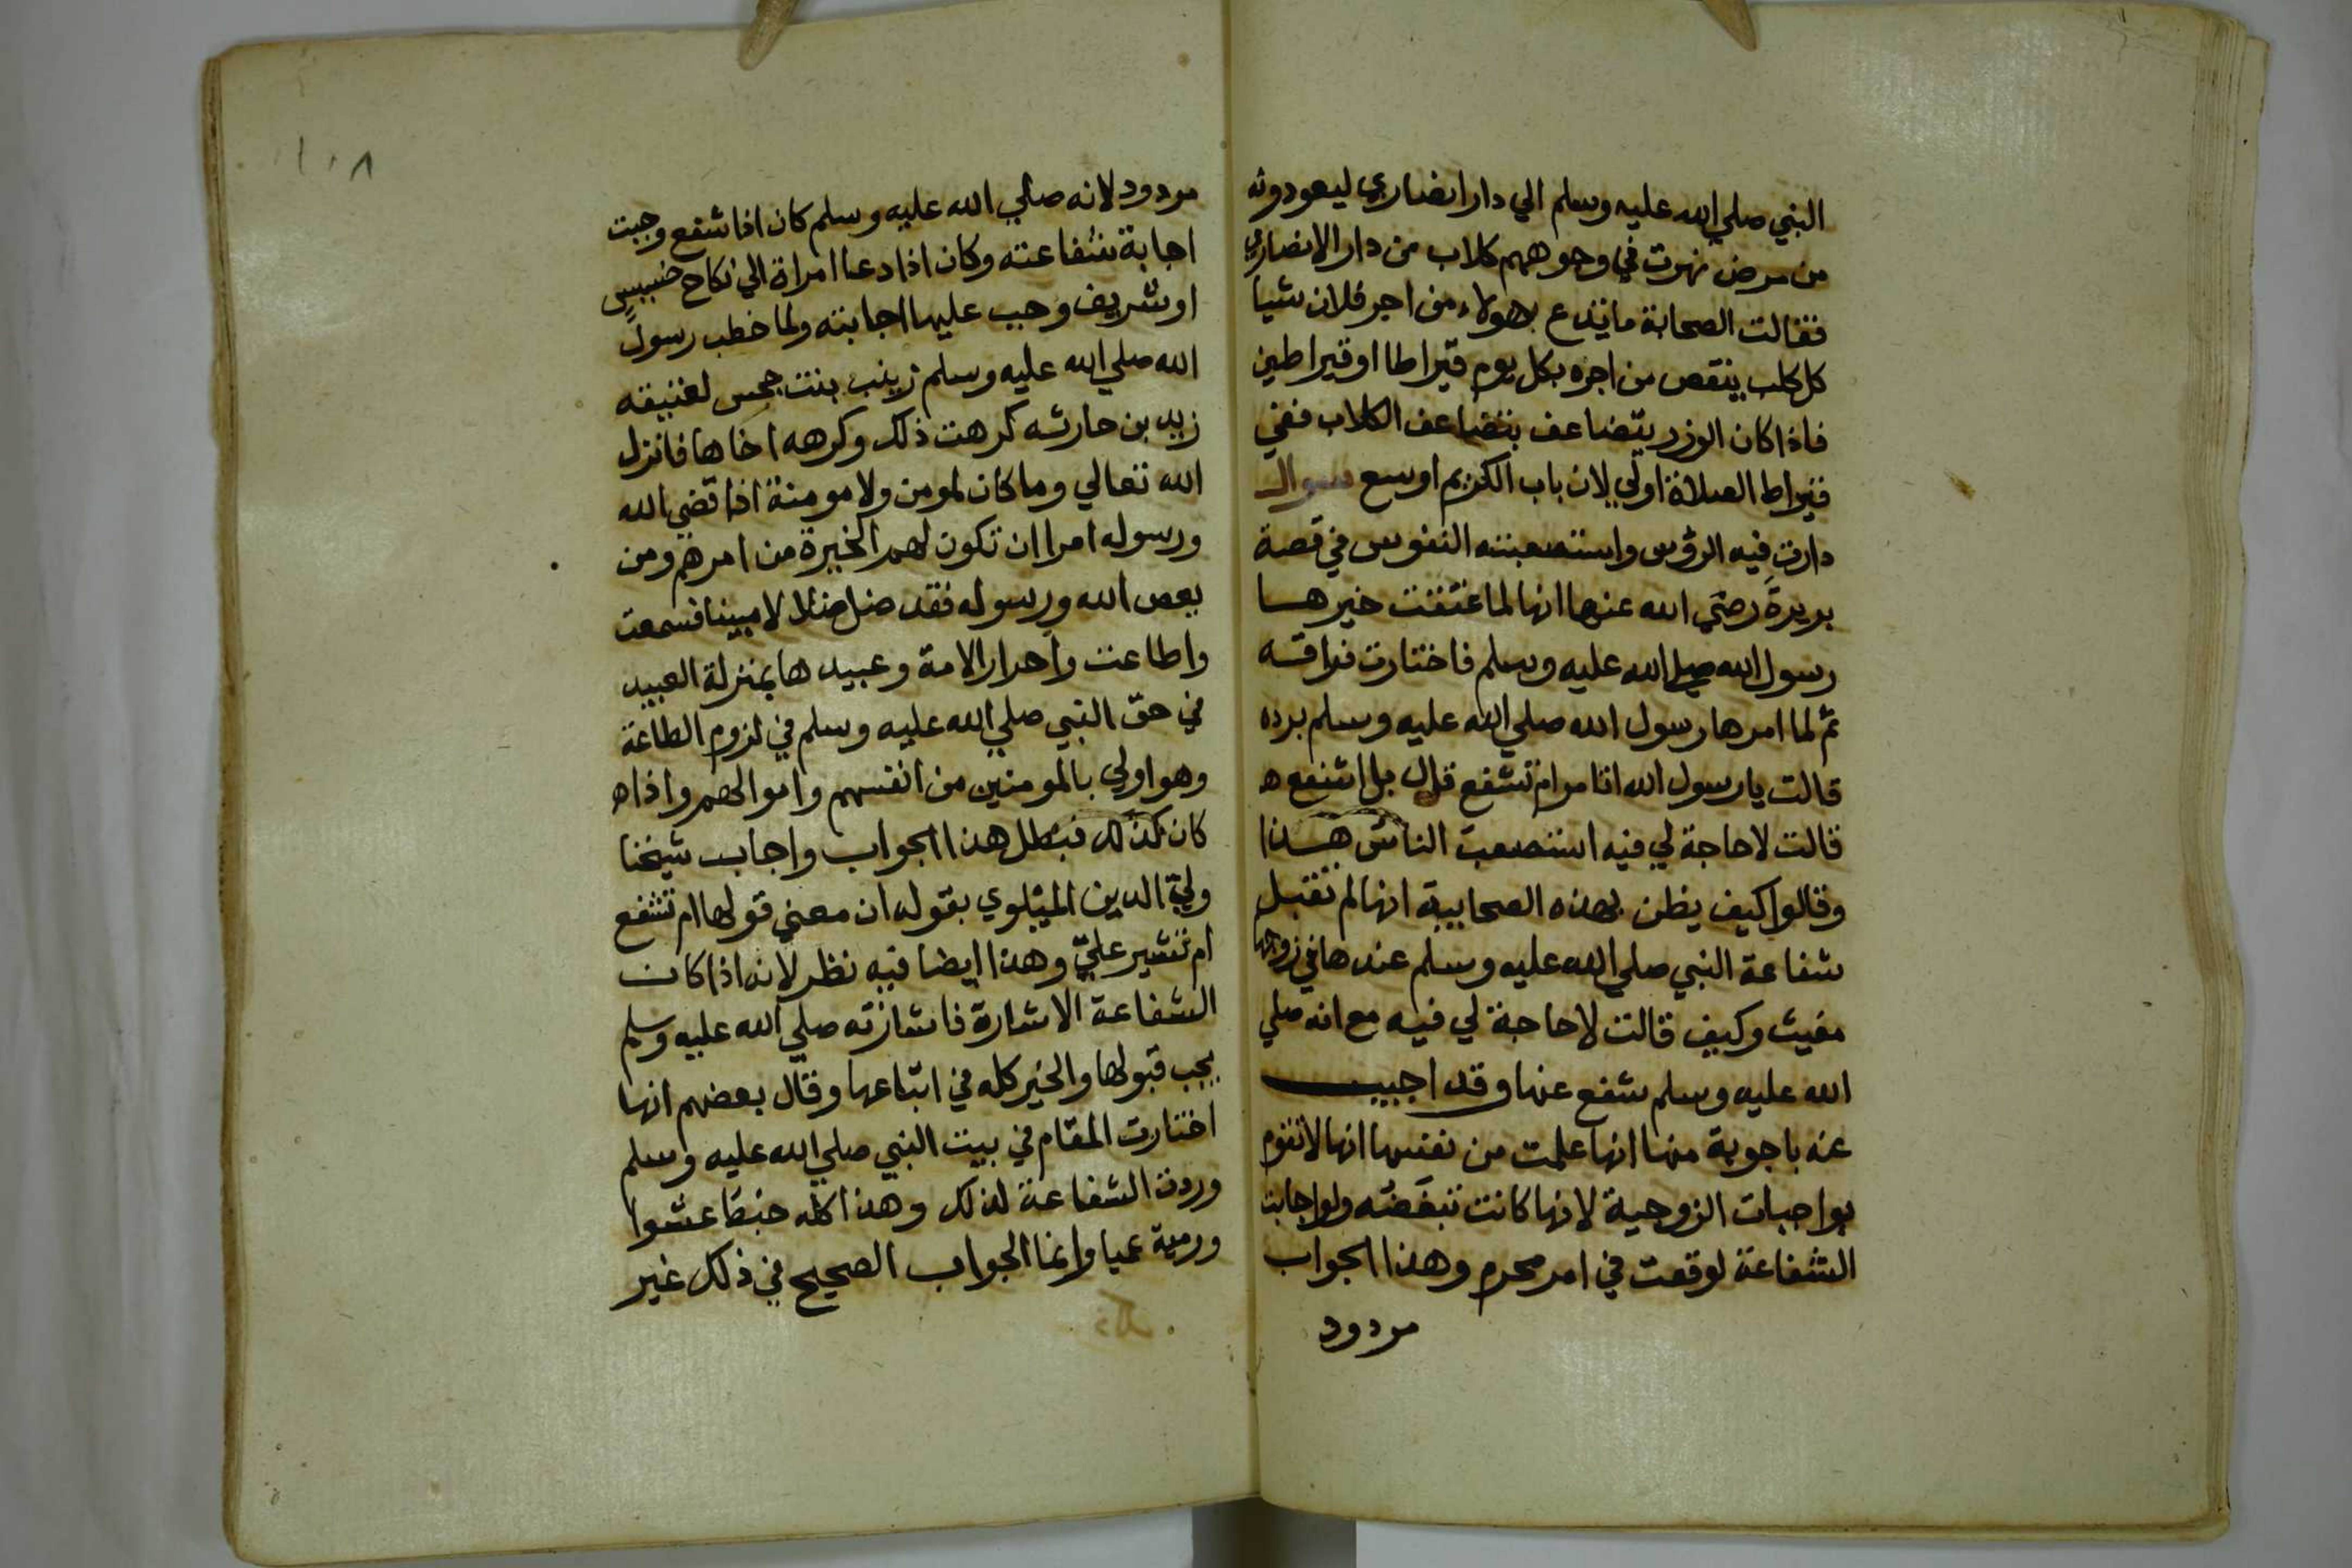 النبي صلي الله عليه وسلم الي دار انصاري ليعودونه
من مرض نهرت في وجوههم كلاب من دار الانصاري
فقالت الصحابة ما تدع هولاء من اجر فلان شيا
كل كلب ينقص من اجره بكل يوم قيراطا او قيراطين
فاذا كان الوزر يتضاعف بتضاعف الكلاب ففي
قيراط الصلاة اولي لان باب الكريم اوسع سوال
دارت فيه الرؤس واستصعبته النفوس في قصة
بريرة رضي الله عنها انها لما عتقت خيرها
رسول الله صلي الله عليه وسلم فاختارت فراقه
ثم لما امرها رسول الله صلي الله عليه وسلم برده
قالت يا رسول الله اتامر ام تشفع قال بل اشفع ه
قالت لا حاجة لي فيه استصعبت الناس هذا
وقالوا كيف يظن بهذه الصحابية انها لم تقبل
شفاعة النبي صلي الله عليه وسلم عندها في زوجها
مغيث وكيف قالت لا حاجة لي فيه مع انه صلي
الله عليه وسلم شفع عنها وقد اجيب
عنه باجوبة منها انها علمت من نفسها انها لا تقوم
بواجبات الزوجية لانها كانت تبغضه ولو اجابت
الشفاعة لوقعت في امر محرم وهذا الجواب
مردود
١٠٨
مردود لانه صلي الله عليه وسلم كان اذا شفع وجبت
اجابة شفاعته وكان اذا دعا امراة الي نكاح خسيس
او شريف وجب عليها اجابته ولما خطب رسول
الله صلي الله عليه وسلم زينب بنت جحس لعتيقه
زيد بن حارثه كرهت ذلك وكرهه اخاها فانزل
الله تعالي وما كان لمومن ولا مومنة اذا قضي الله
ورسوله امرا ان تكون لهم الخيرة من امرهم ومن
يعص الله ورسوله فقد ضل ضلالا مبينا فسمعت
واطاعت واحرار الامة وعبيدها بمنزلة العبيد
في حق النبي صلي الله عليه وسلم في لزوم الطاعة
وهو اولي بالمومنين من انفسهم واموالهم واذا ه
كان كذلك فبطل هذا الجواب واجاب شيخنا
ولي الدين الميلوي بقوله ان معني قولها ام تشفع
ام تشير علي وهذا ايضا فيه نظر لانه اذا كان
الشفاعة الاشارة فاشارته صلي الله عليه وسلم
يجب قبولها والخير كله في اتباعها وقال بعضهم انها
اختارت المقام في بيت النبي صلي الله عليه وسلم
وردت الشفاعة لذلك وهذا كله خبط عشوا
ورمية عميا وانما الجواب الصحيح في ذلك غير
ذلك